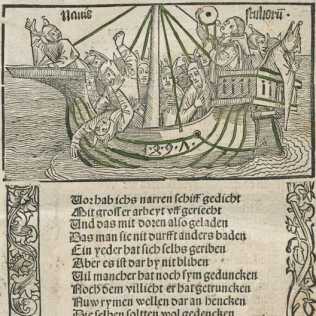 Nauis ſtultorū.
Vor hab ichs narren ſchiff gedicht
Mit groſſer arbeyt vff gericcht
Vnd das mit doren alſo geladen
Das man ſie nit durfft anders baden
Ein yeder hat ſich ſelbs geriben
Aber es iſt dar by nit bliben
Vil mancher hat noch ſym geduncken
Noch dem villicht er hat getruncken
Nuw rymen wellen dar an hencken
Die ſelben ſoltten wol gedencken